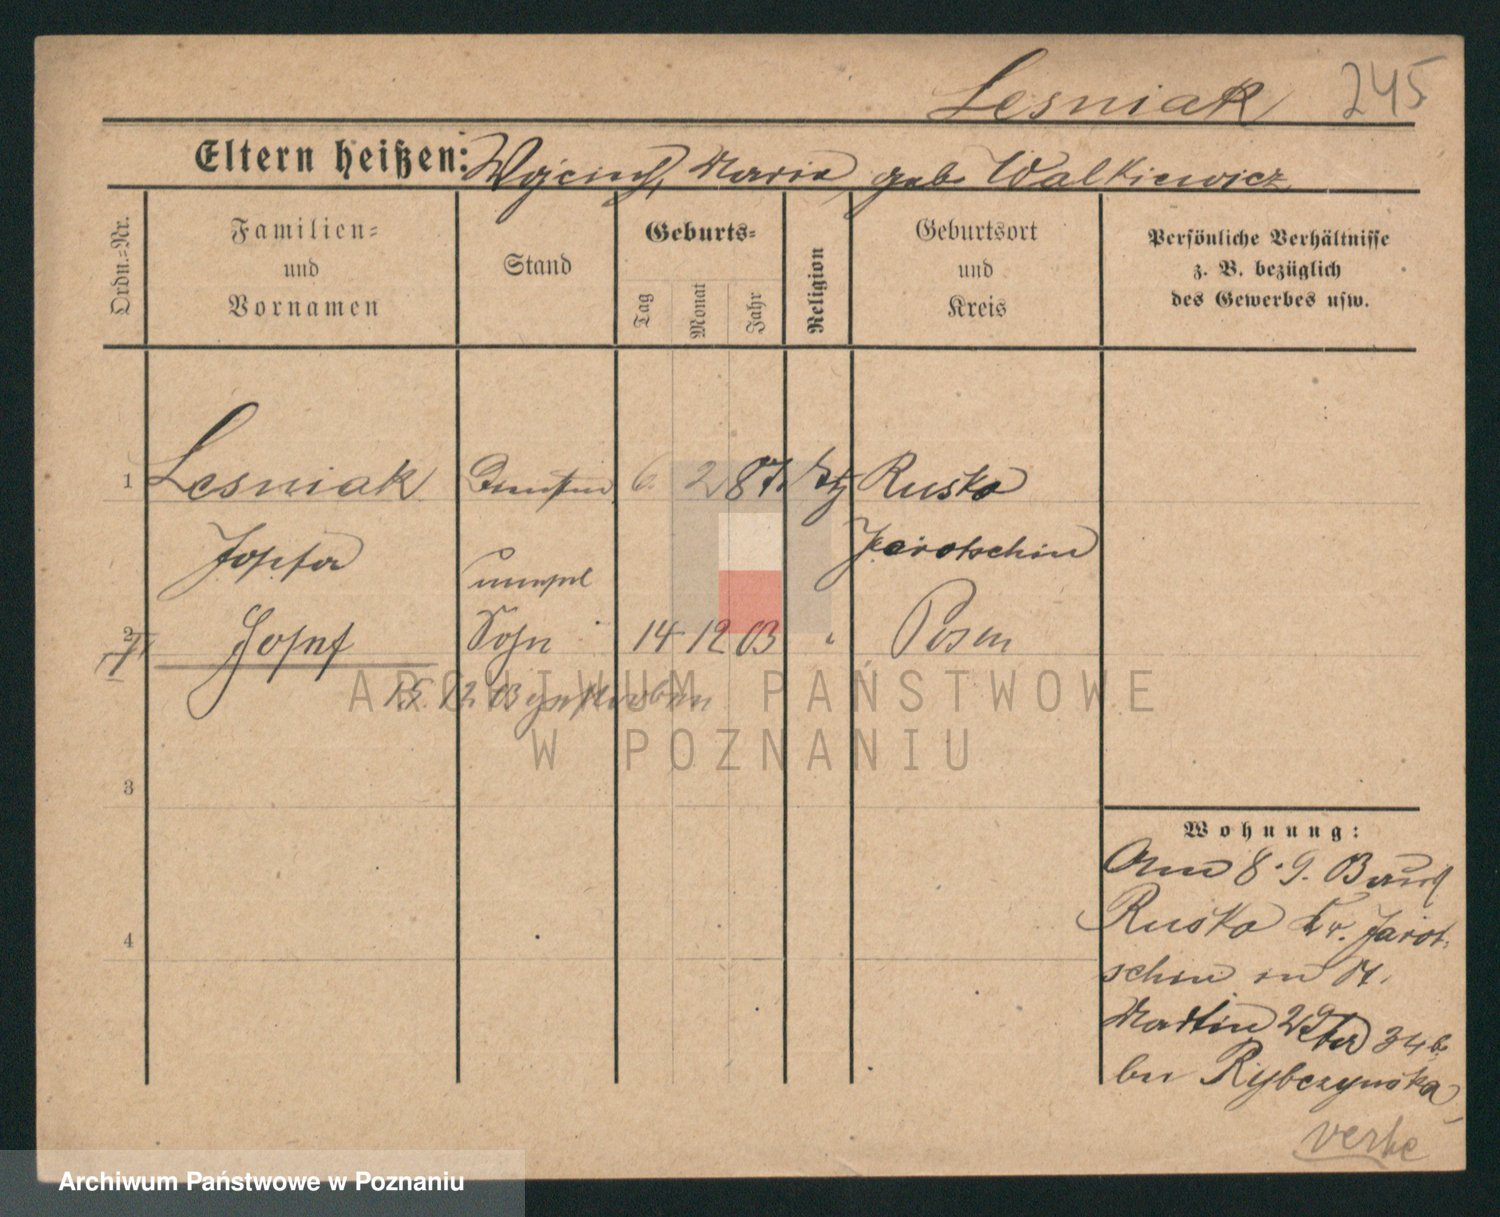 Lesniak 245
Eltern heißen: Wojciech, Maria geb Walkiewicz
Ordn.-Nr.
Familien-
und
Vornamen
Stand
Geburts-
Tag
Monat
Jahr
Religion
Geburtsort
und
Kreis
Persönliche Verhältnisse
z. B. bezüglich
des Gewerbes usw.
1 Lesniak 6. 2 87. ktl Rusko
Josefa Jarotschin
unehel
2 Josef Sohn 14 12 03 " Posen
15. 12 03 gestorben
3
4
Wohnung:
8. 9.
Rusko Kr. Jarot-
schin in St.
Martin
bei Rybczynska
ARCHIWUM PAŃSTWOWE
W POZNANIU
Archiwum Państwowe w Poznaniu